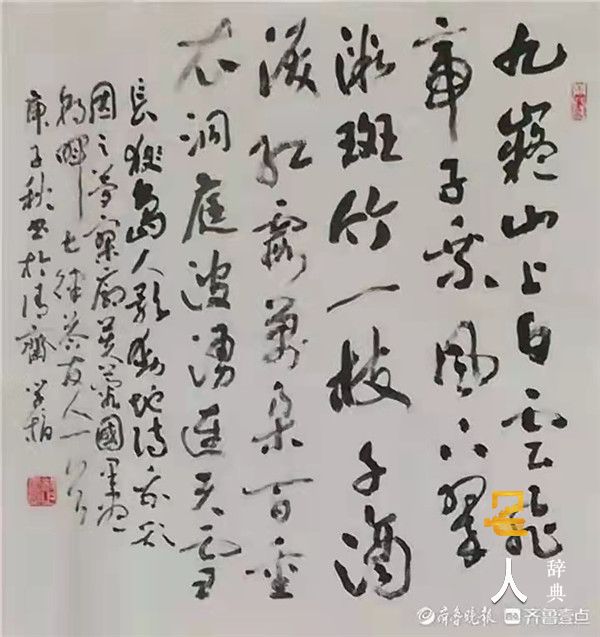 九嶷山上白云飞
帝子乘风下翠
微斑竹一枝千滴
淚红霞萬朵百重
衣洞庭波湧连天雪
長島人歌動地诗我欲
因之夢寥廓芙蓉國里尽
朝暉七律答友人一首
庚子秋书於清齋学柏
人
辞典
齐鲁晚报
齐鲁壹点